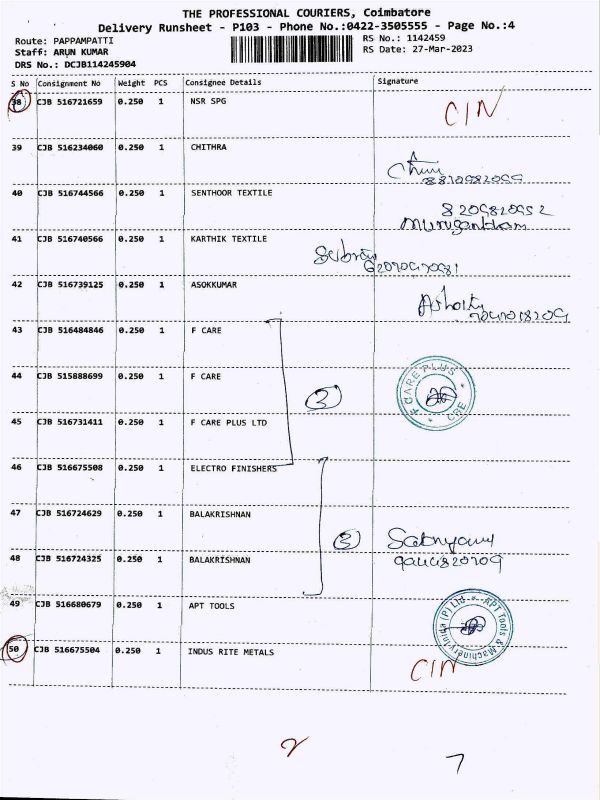 THE PROFESSIONAL COURIERS, Coimbatore
Delivery Runsheet - P103 - Phone No.:0422-3505555 - Page No.:4
Route: PAPPAMPATTI
RS No.: 1142459
Staff: ARUN KUMAR
RS Date: 27-Mar-2023
DRS No.: DCJB114245904
S No Consignment No Weight PCS Consignee Details Signature
38 CJB 516721659 0.250 1 NSR SPG CIN
39 CJB 516234060 0.250 1 CHITHRA
40 CJB 516744566 0.250 1 SENTHOOR TEXTILE
41 CJB 516740566 0.250 1 KARTHIK TEXTILE
42 CJB 516739125 0.250 1 ASOKKUMAR
43 CJB 516484846 0.250 1 F CARE
44 CJB 515888699 0.250 1 F CARE
F CARE PLUS CBE
45 CJB 516731411 0.250 1 F CARE PLUS LTD
46 CJB 516675508 0.250 1 ELECTRO FINISHERS
47 CJB 516724629 0.250 1 BALAKRISHNAN
48 CJB 516724325 0.250 1 BALAKRISHNAN
49 CJB 516680679 0.250 1 APT TOOLS
APT Tools & Machinery India (P) Ltd
50 CJB 516675504 0.250 1 INDUS RITE METALS CIN
2
7